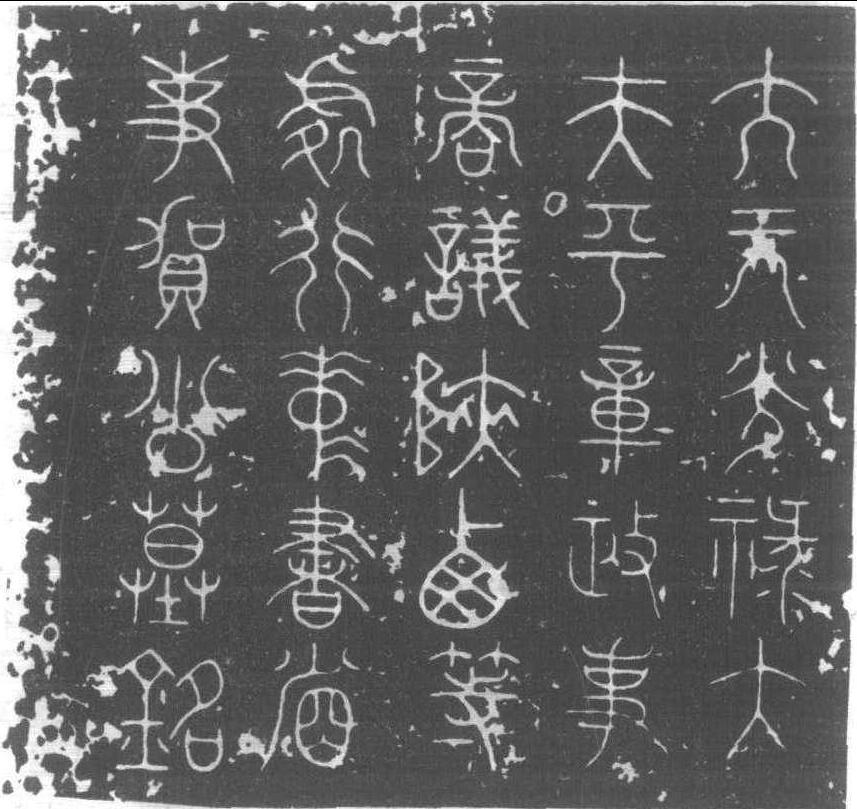 大元光祿大
夫平章政事
商議陝西等
處行中書省
事賀公墓銘